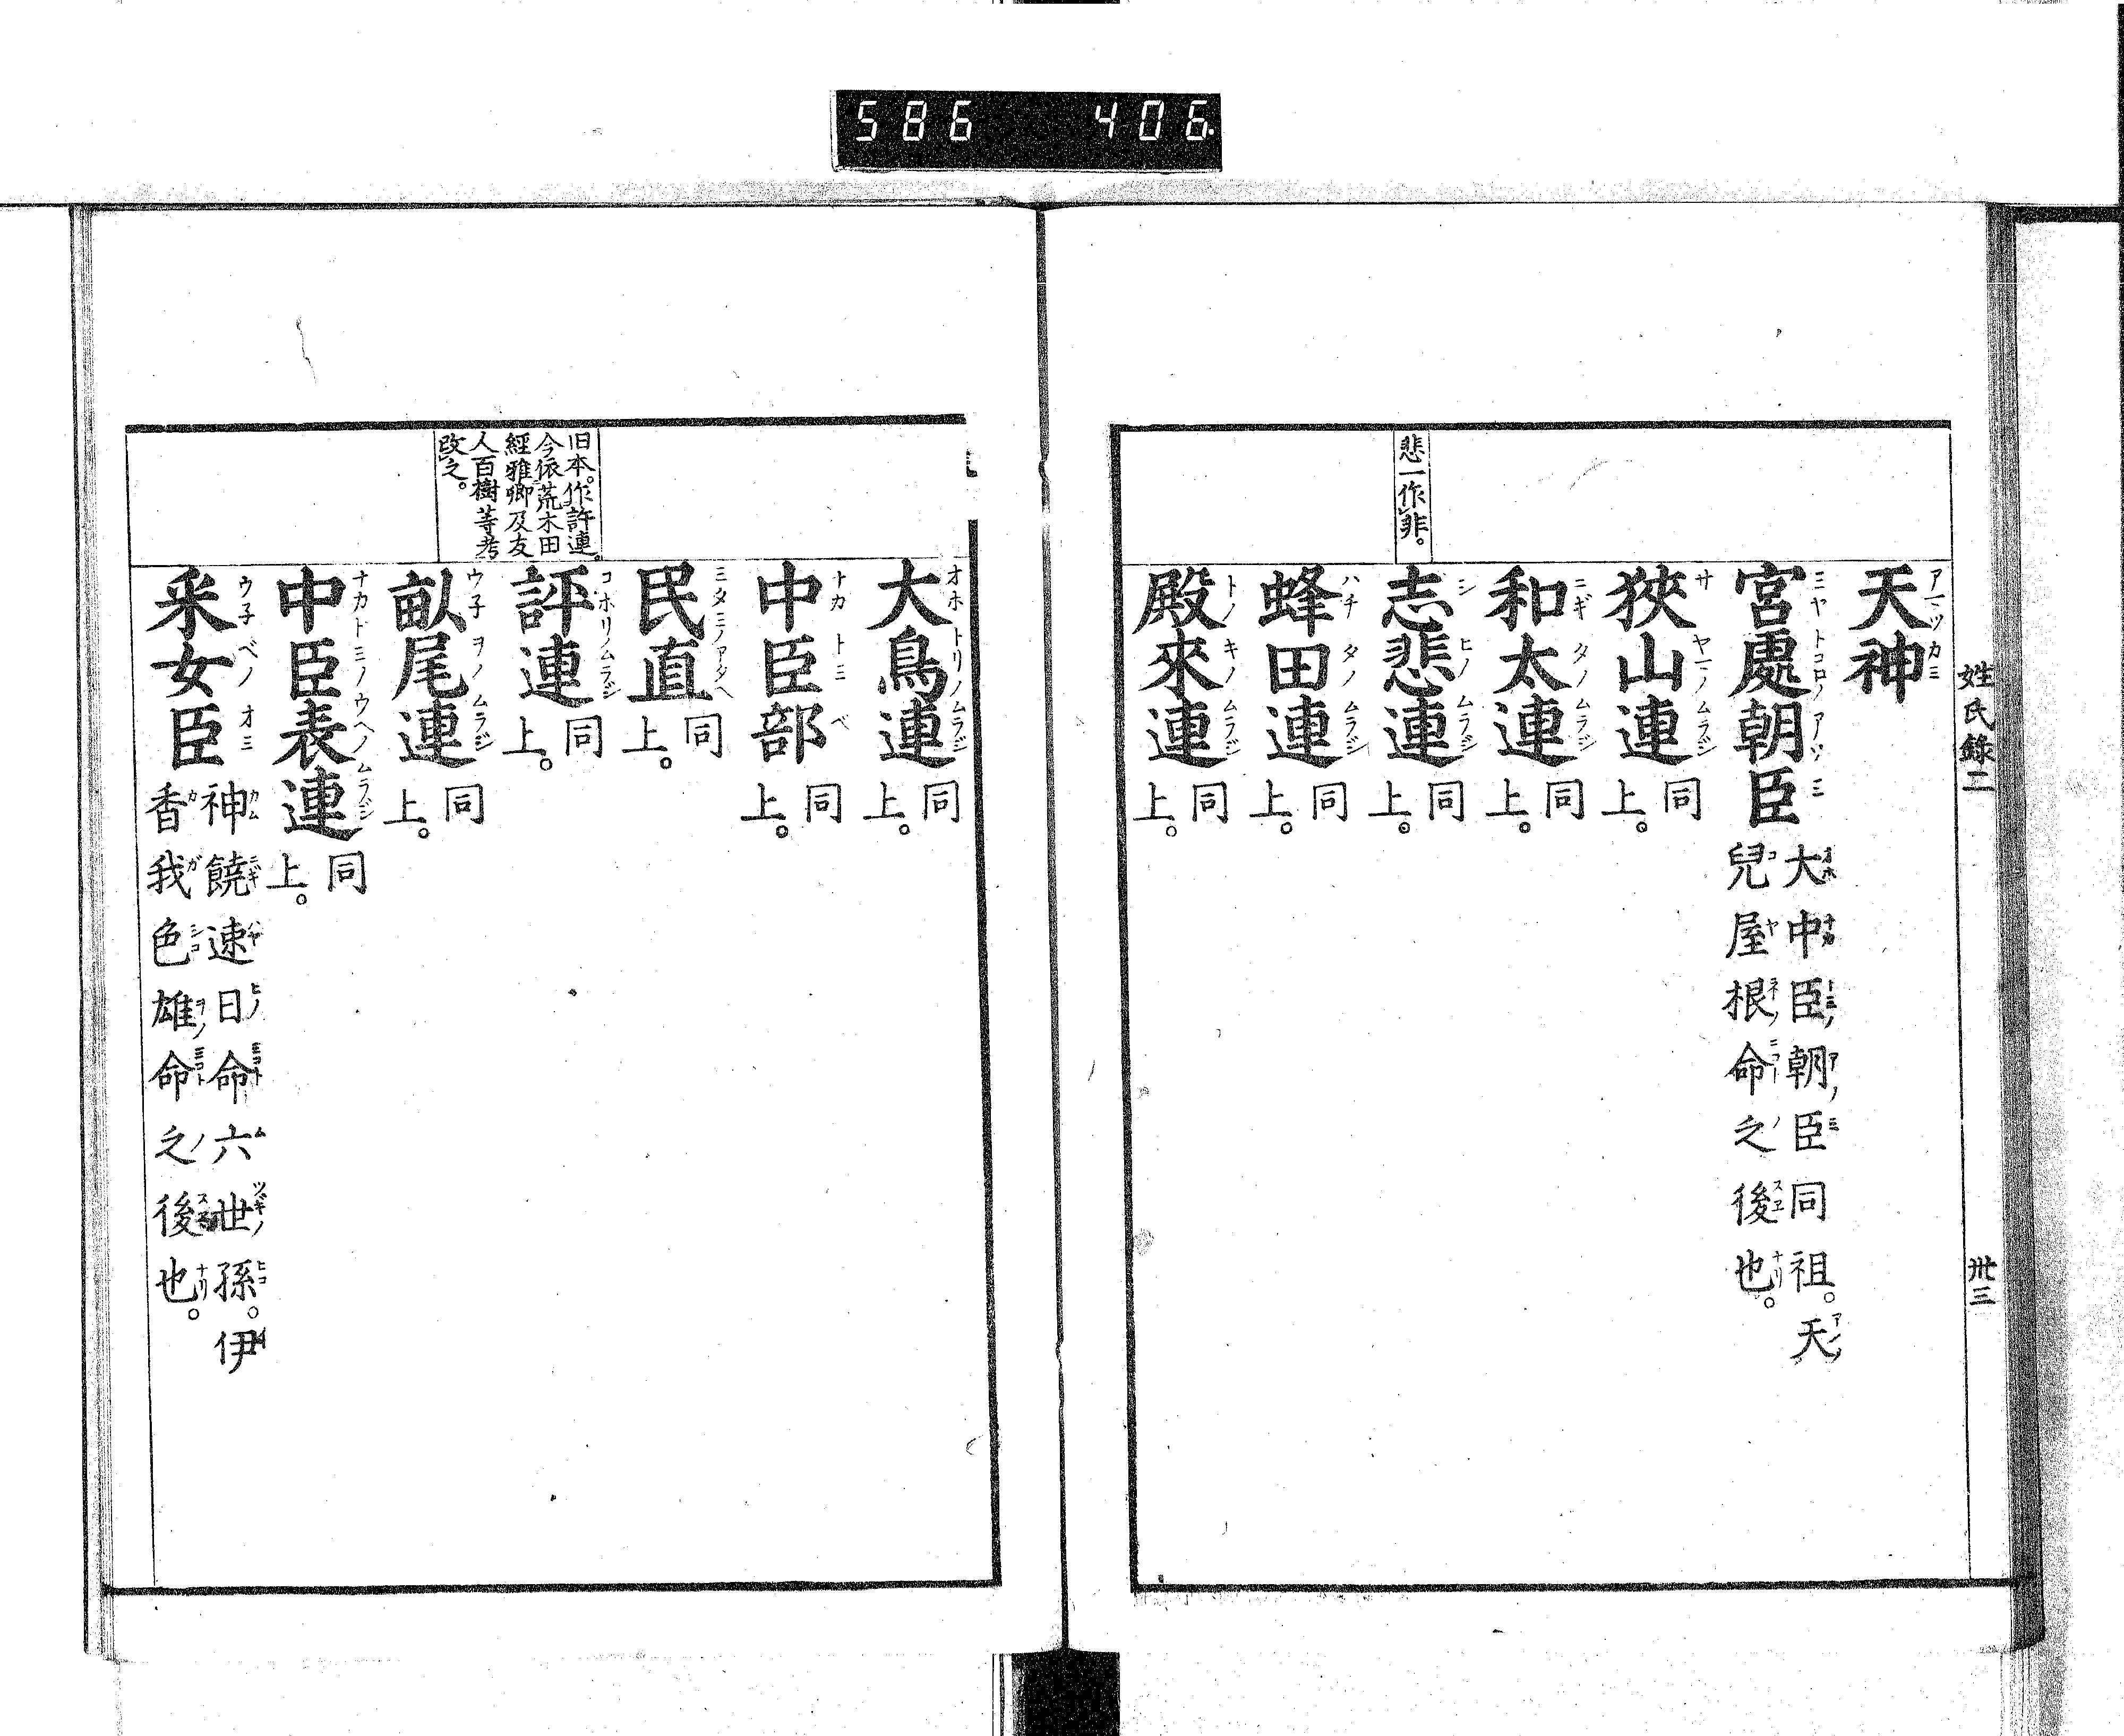 586 406
姓氏錄二
卅三
天神
宮處朝臣
大中臣朝臣同祖。天
兒屋根命之後也。
狹山連 同上。
和太連 同上。
悲一作非。
志悲連 同上。
蜂田連 同上。
殿來連 同上。
大鳥連 同上。
中臣部 同上。
民直 同上。
旧本。作許連。
今依荒木田
經雅卿及友
人百樹等考
改之。
評連 同上。
畝尾連 同上。
中臣表連 同上。
釆女臣
神饒速日命六世孫。伊
香我色雄命之後也。